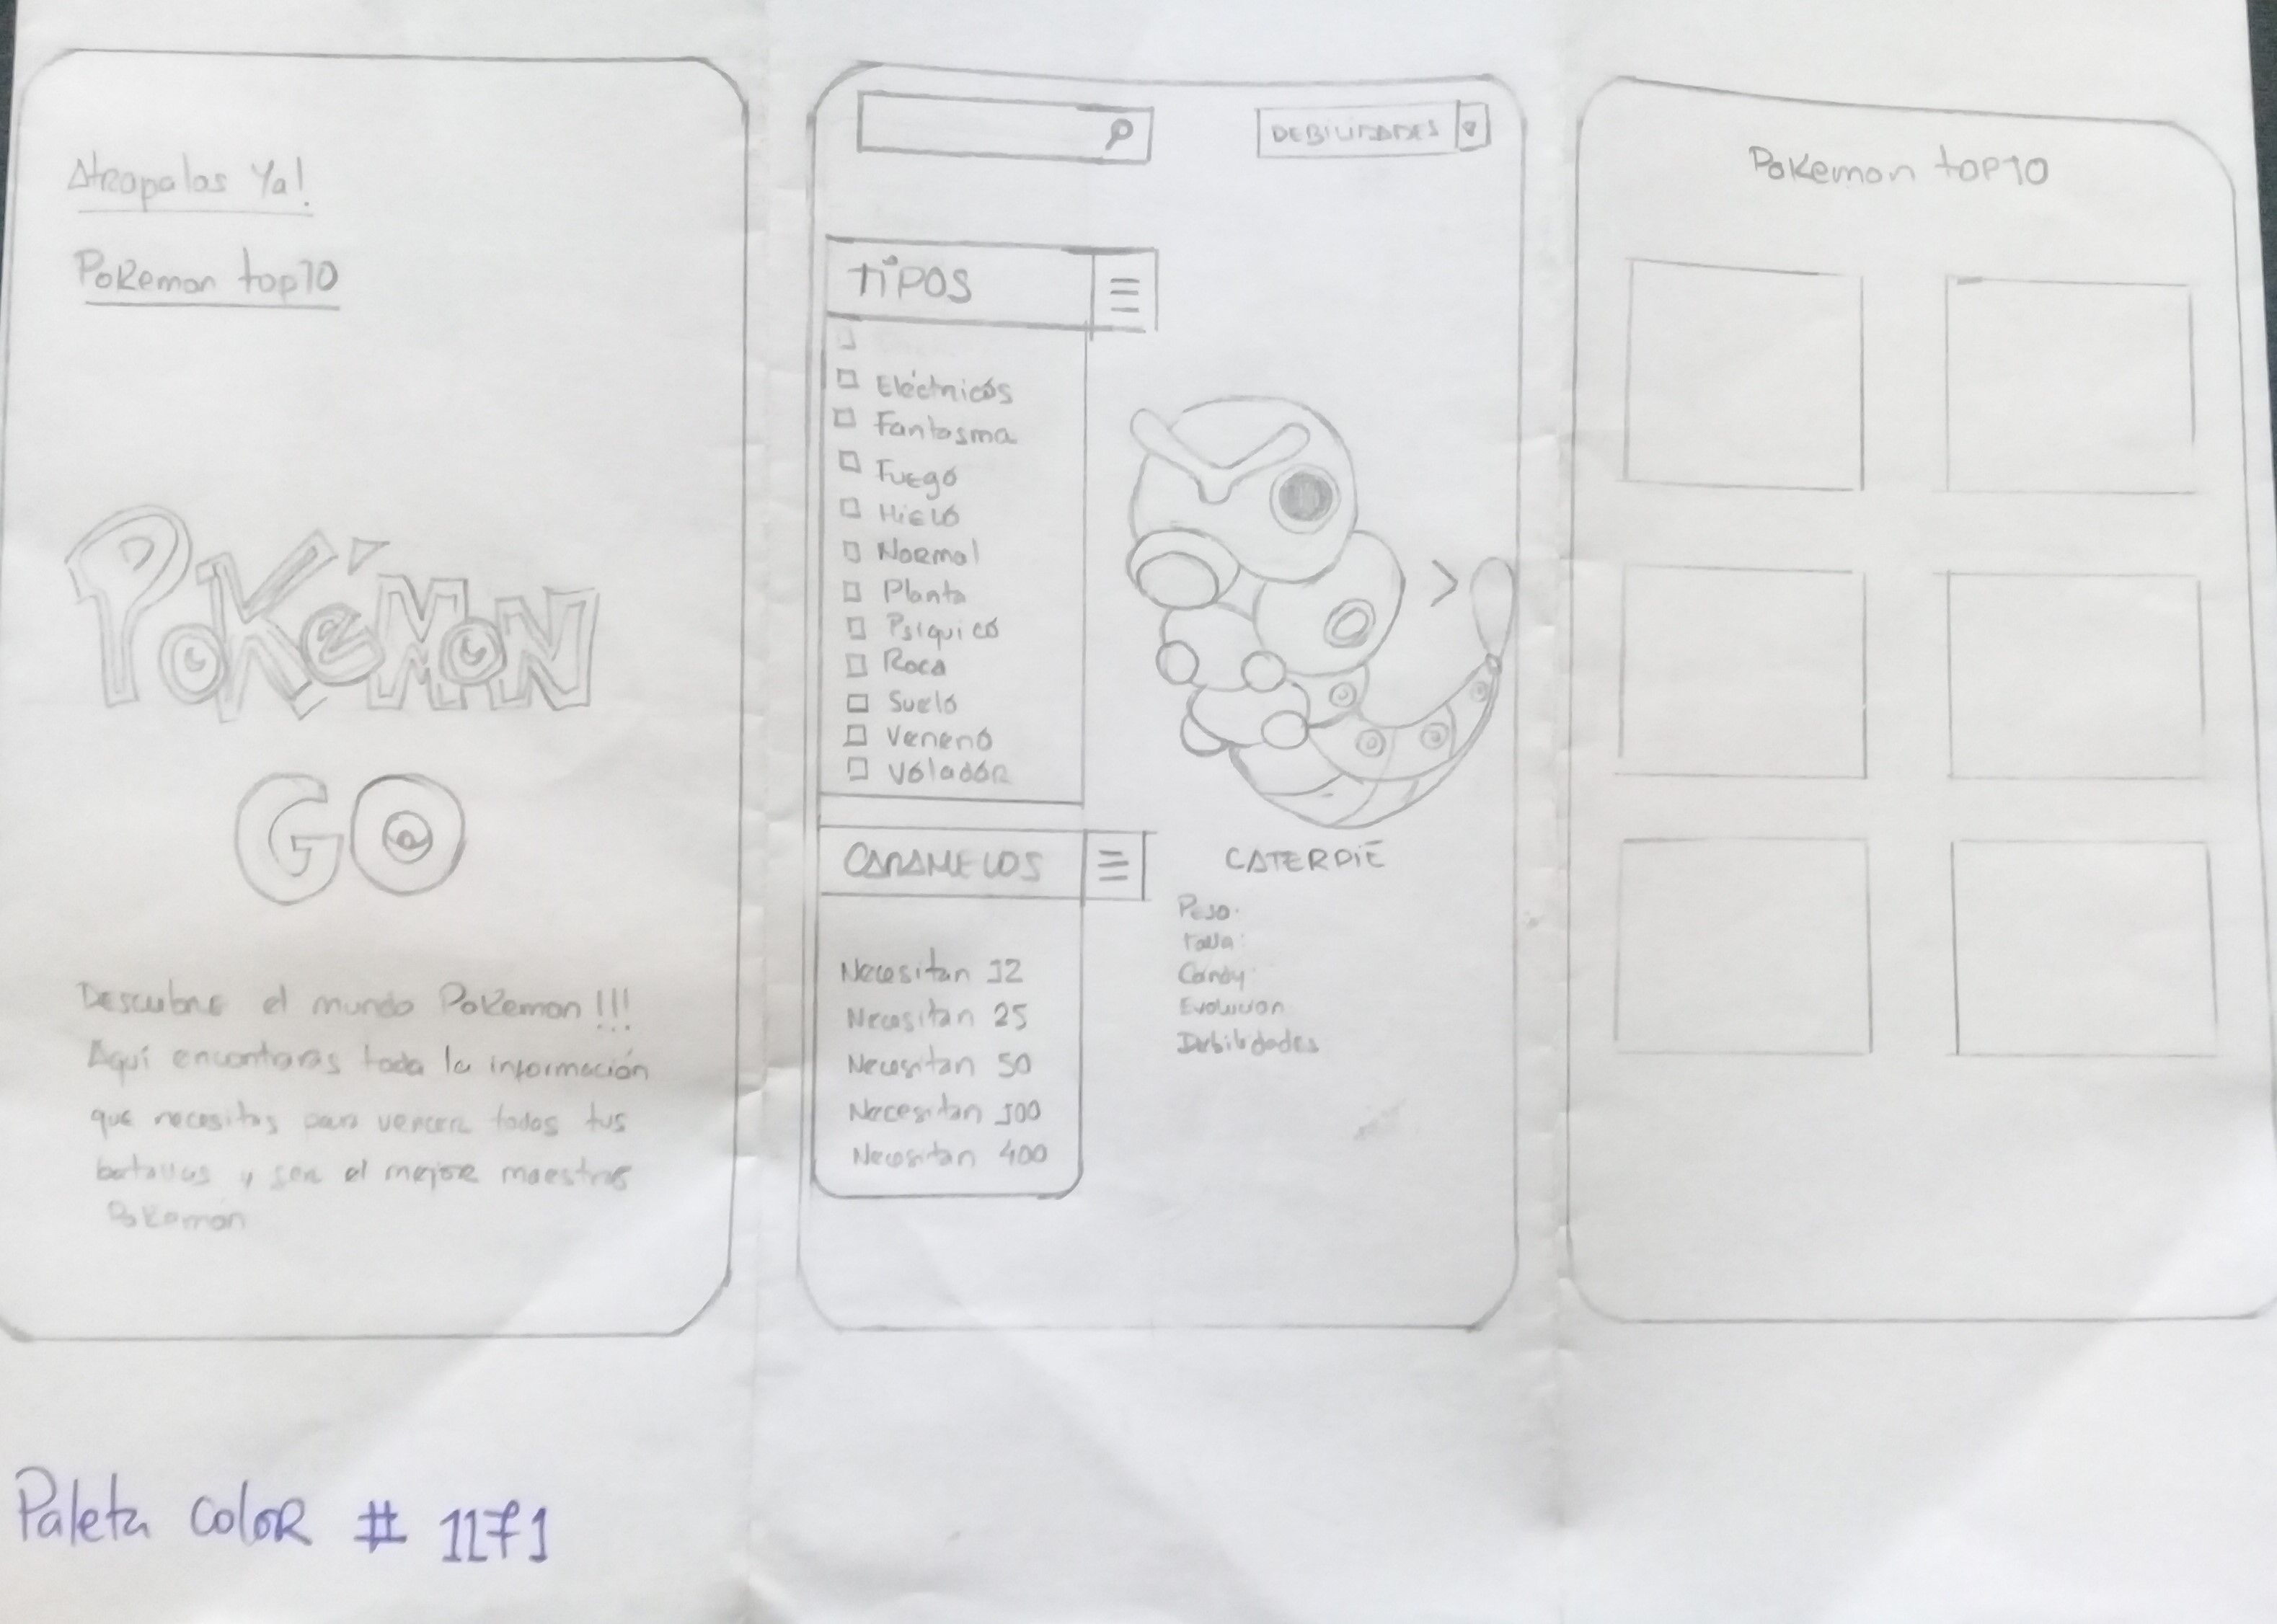 Atrapalos Ya!
Pokemon top10
POKÉMON
GO
Descubre el mundo Pokemon!!!
Aquí encontraras toda la información
que necesitas para vencer todas tus
batallas y ser el mejor maestro
Pokemon
DEBILIDADES
TIPOS
Eléctricos
Fantasma
Fuego
Hielo
Normal
Planta
Psiquico
Roca
Suelo
Veneno
Volador
CARAMELOS
Necesitan 12
Necesitan 25
Necesitan 50
Necesitan 100
Necesitan 400
>
CATERPIE
Peso:
talla:
Candy:
Evolucion
Debilidades
Pokemon top10
Paleta color # 1171